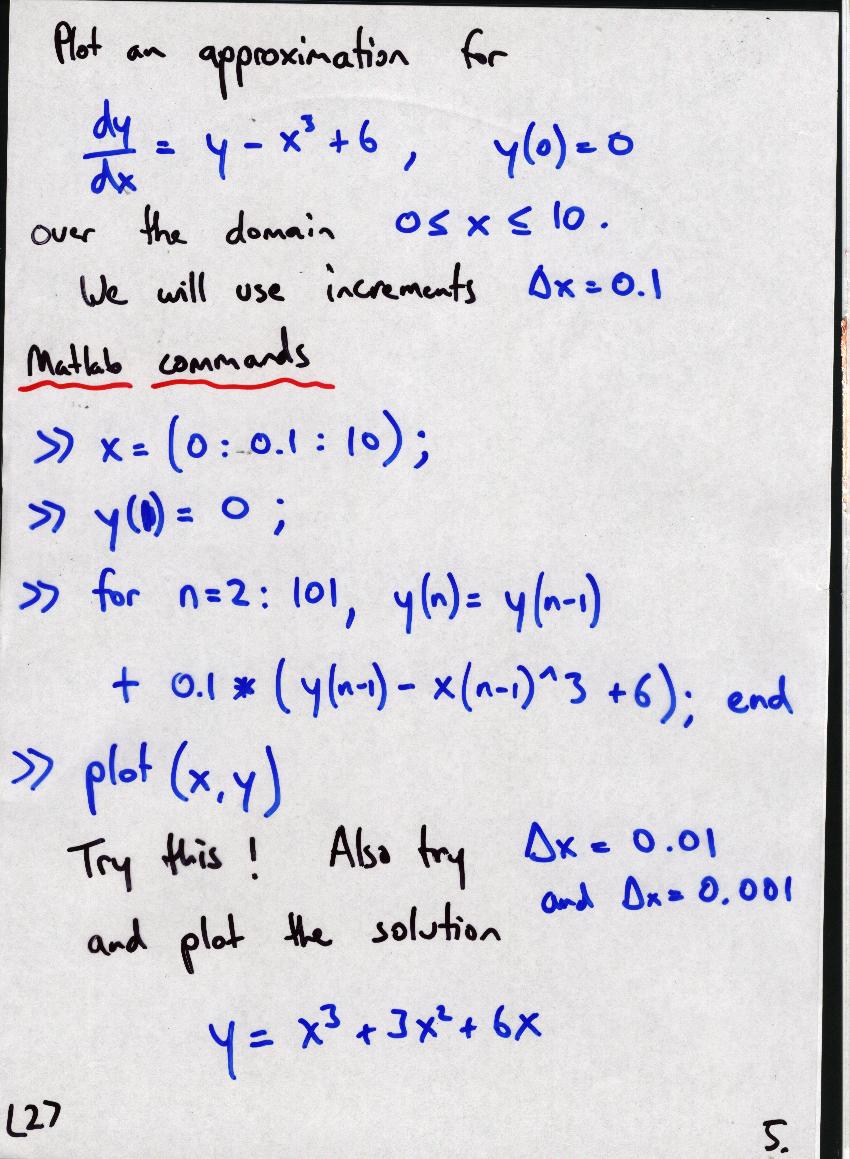 Plot an approximation for
dy/dx = y - x³ + 6 , y(0) = 0
over the domain 0 ≤ x ≤ 10 .
We will use increments Δx = 0.1
Matlab commands
>> x = (0 : 0.1 : 10) ;
>> y(1) = 0 ;
>> for n=2 : 101, y(n) = y(n-1)
+ 0.1 * ( y(n-1) - x(n-1)^3 + 6) ; end
>> plot (x, y)
Try this ! Also try Δx = 0.01
and Δx = 0.001
and plot the solution
y = x³ + 3x² + 6x
L27
5.